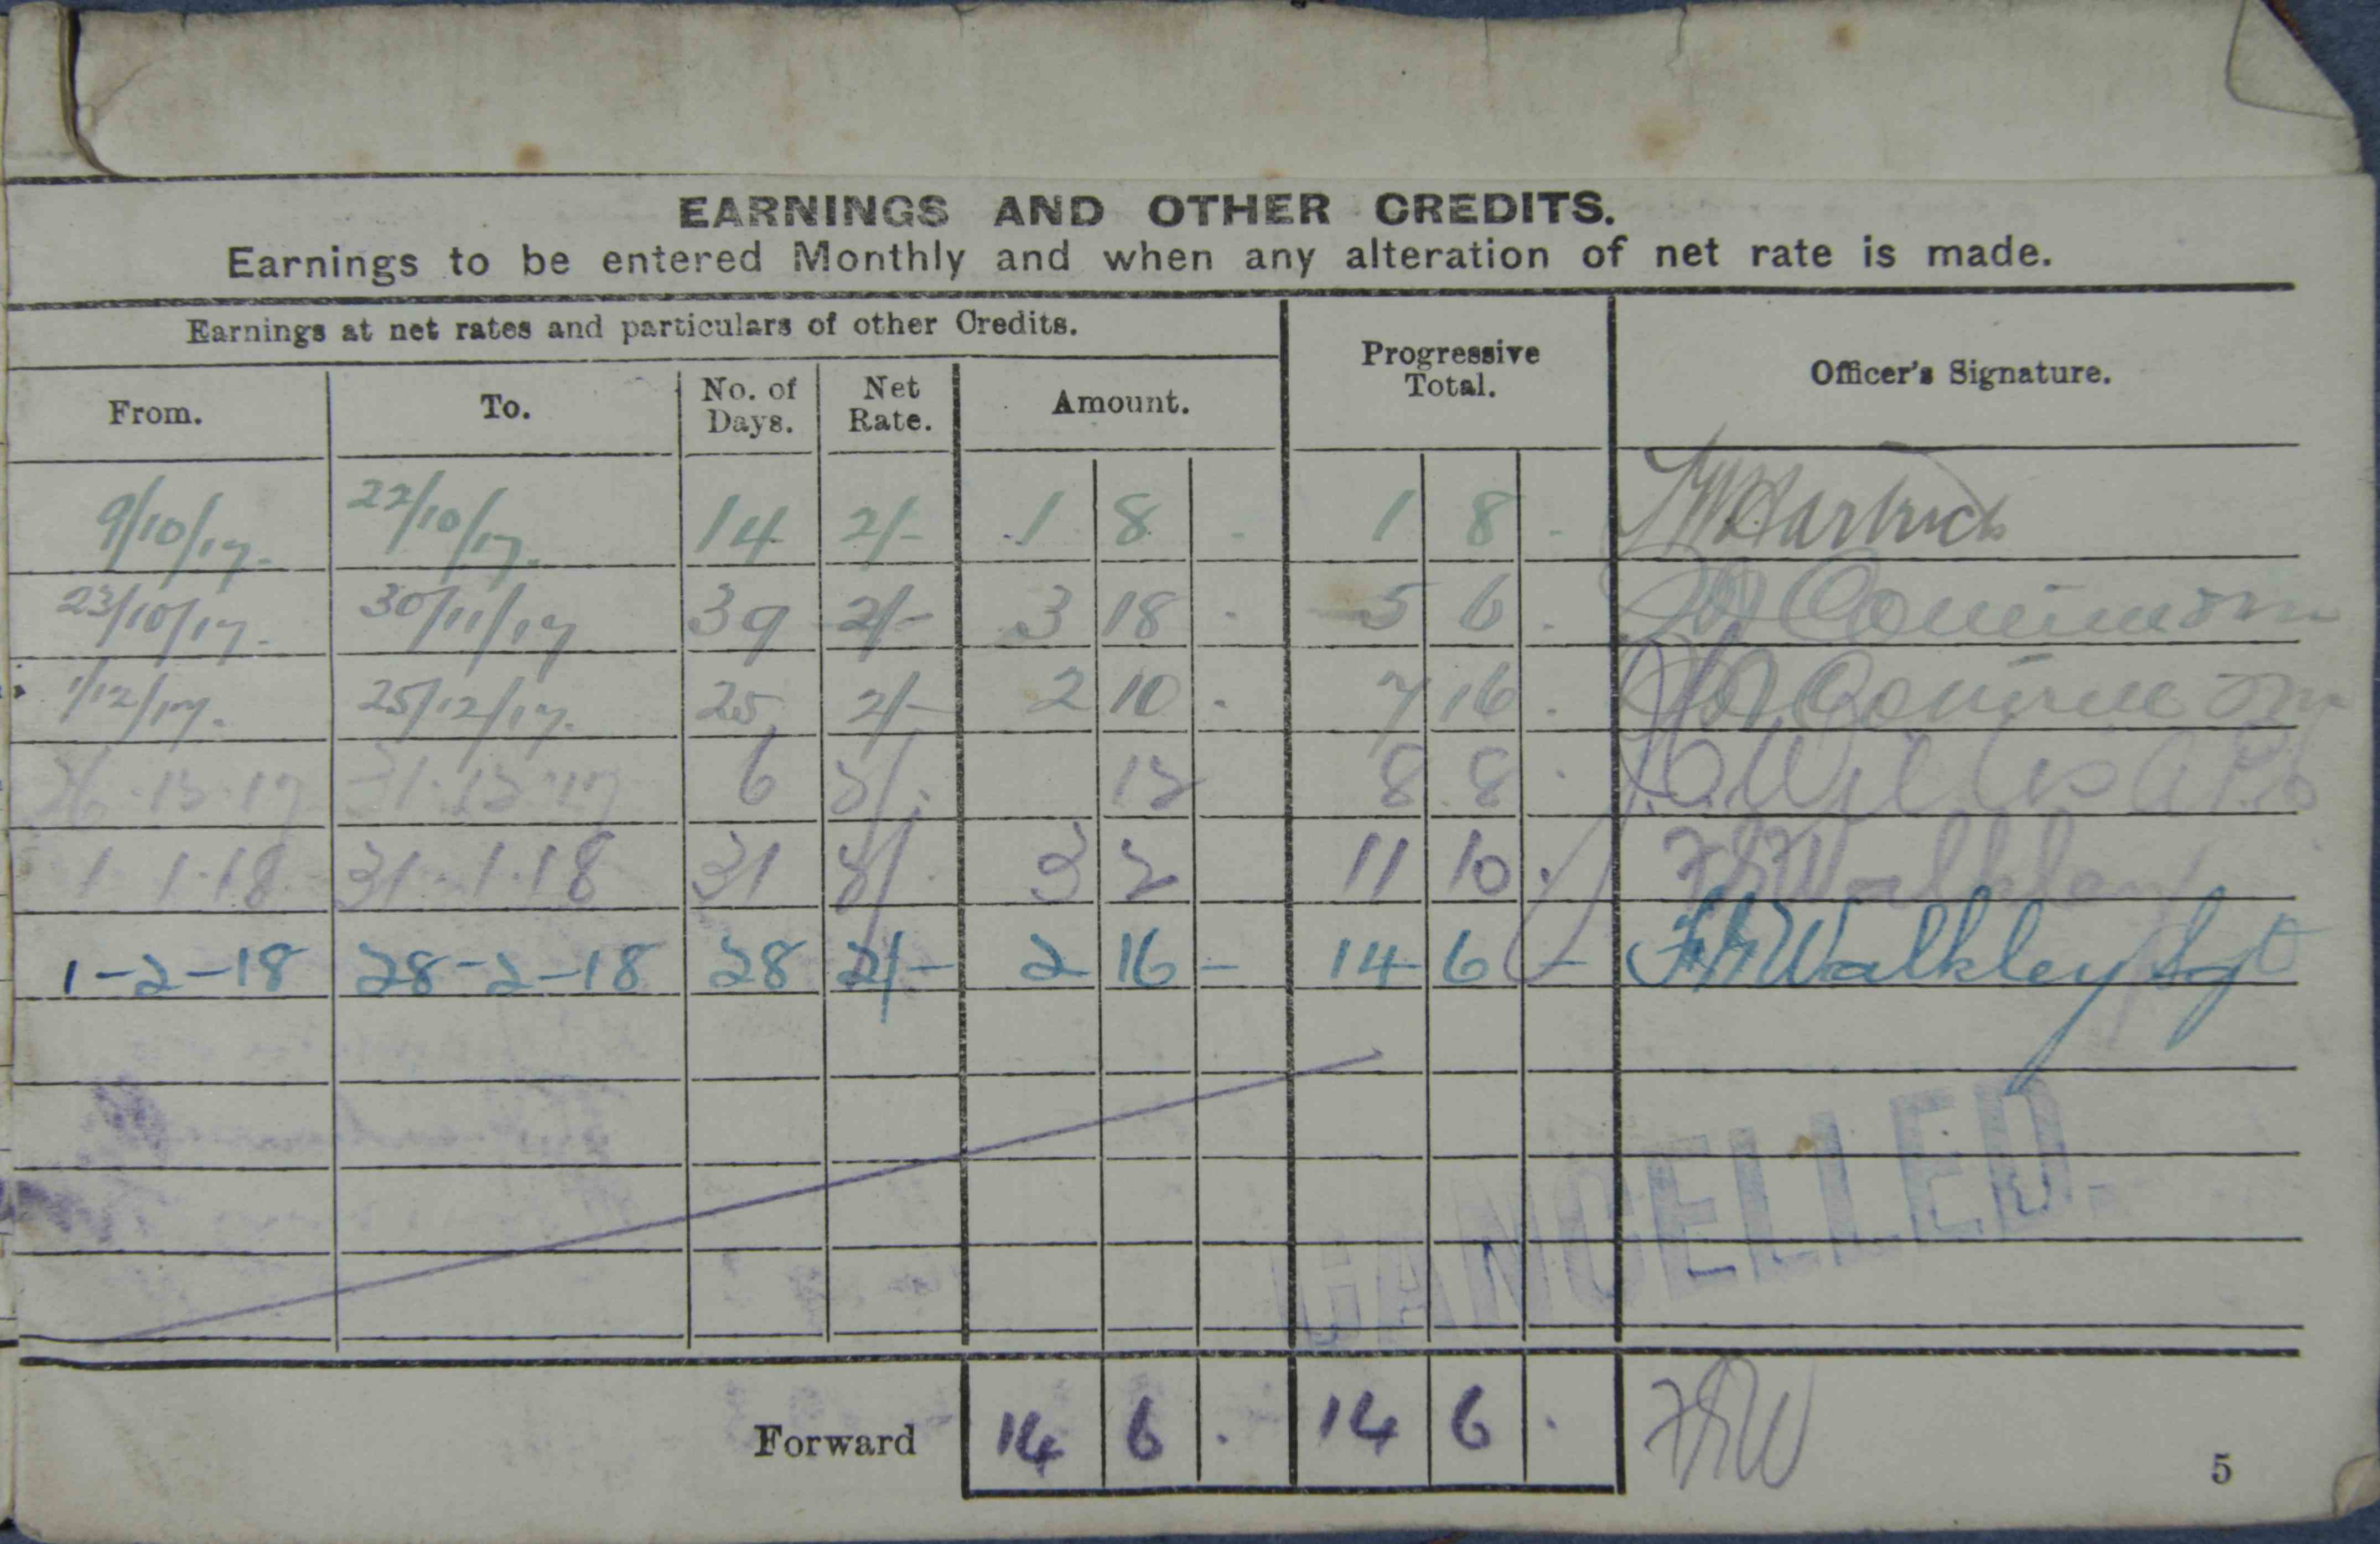 EARNINGS AND OTHER CREDITS.
Earnings to be entered Monthly and when any alteration of net rate is made.
Earnings at net rates and particulars of other Credits.
Progressive Total.
Officer's Signature.
From. To. No. of Days. Net Rate. Amount.
9/10/17. 22/10/17. 14 2/- 1 8 - 1 8 -
23/10/17. 30/11/17 39 2/- 3 18 - 5 6 .
1/12/17. 25/12/17. 25 2/- 2 10 . 7 16 .
26.12.17 31.12.17 6 2/. 12 8 8 .
1.1.18 31.1.18 31 2/. 3 2 11 10 . Walkley
1-2-18 28-2-18 28 2/- 2 16 - 14 6 - Walkley Sgt
CANCELLED.
Forward 14 6 . 14 6 .
5